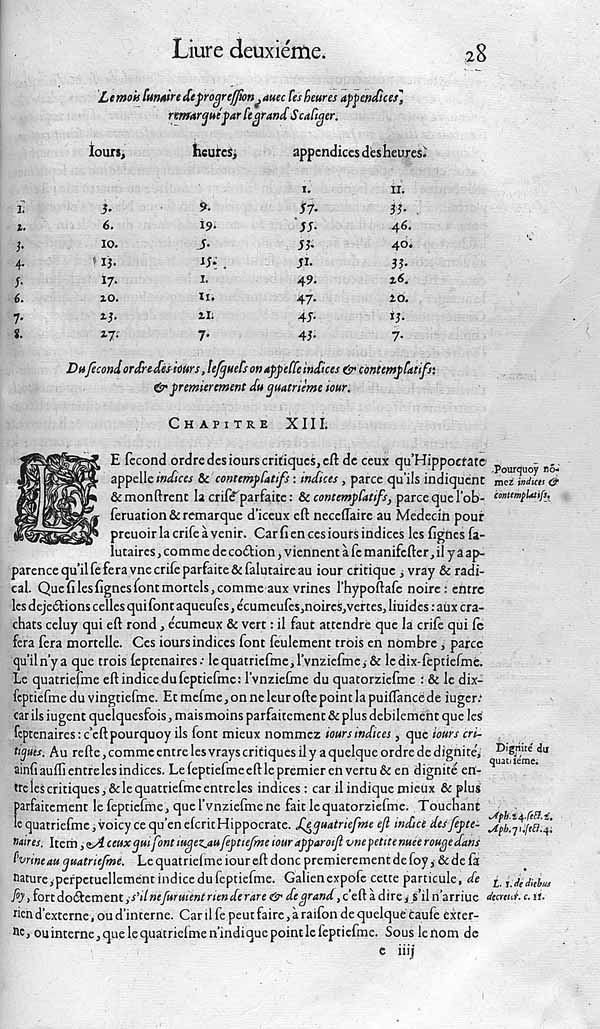 Liure deuxiéme. 28
Le mois lunaire de progreſſion, auec ſes heures appendices,
remarqué par le grand Scaliger.
Iours, heures, appendices des heures.
I. II.
1. 3. 9. 57. 33.
2. 6. 19. 55. 46.
3. 10. 5. 53. 40.
4. 13. 15. 51. 33.
5. 17. 1. 49. 26.
6. 20. 11. 47. 20.
7. 23. 21. 45. 13.
8. 27. 7. 43. 7.
Du ſecond ordre des iours, leſquels on appelle indices & contemplatifs:
& premierement du quatriéme iour.
CHAPITRE XIII.
LE ſecond ordre des iours critiques, eſt de ceux qu'Hippocrate
appelle indices & contemplatifs: indices, parce qu'ils indiquent
& monſtrent la criſe parfaite: & contemplatifs, parce que l'ob-
ſeruation & remarque d'iceux eſt neceſſaire au Medecin pour
preuoir la criſe à venir. Car ſi en ces iours indices les ſignes ſa-
lutaires, comme de coction, viennent à ſe manifeſter, il y a ap-
parence qu'il ſe fera vne criſe parfaite & ſalutaire au iour critique, vray & radi-
cal. Que ſi les ſignes ſont mortels, comme aux vrines l'hypoſtaſe noire: entre
les dejections celles qui ſont aqueuſes, écumeuſes, noires, vertes, liuides: aux cra-
chats celuy qui eſt rond, écumeux & vert: il faut attendre que la criſe qui ſe
fera ſera mortelle. Ces iours indices ſont ſeulement trois en nombre, parce
qu'il n'y a que trois ſeptenaires: le quatrieſme, l'vnzieſme, & le dix-ſeptieſme.
Le quatrieſme eſt indice du ſeptieſme: l'vnzieſme du quatorzieſme: & le dix-
ſeptieſme du vingtieſme. Et meſme, on ne leur oſte point la puiſſance de iuger:
car ils iugent quelquesfois, mais moins parfaitement & plus debilement que les
ſeptenaires: c'eſt pourquoy ils ſont mieux nommez iours indices, que iours cri-
tiques. Au reſte, comme entre les vrays critiques il y a quelque ordre de dignité,
ainſi auſſi entre les indices. Le ſeptieſme eſt le premier en vertu & en dignité en-
tre les critiques, & le quatrieſme entre les indices: car il indique mieux & plus
parfaitement le ſeptieſme, que l'vnzieſme ne fait le quatorzieſme. Touchant
le quatrieſme, voicy ce qu'en eſcrit Hippocrate. Le quatrieſme eſt indice des ſepte-
naires. Item, A ceux qui ſont iugez au ſeptieſme iour apparoiſt vne petite nuée rouge dans
l'vrine au quatrieſme. Le quatrieſme iour eſt donc premierement de ſoy, & de ſa
nature, perpetuellement indice du ſeptieſme. Galien expoſe cette particule, de
ſoy, fort doctement, s'il ne ſuruient rien de rare & de grand, c'eſt à dire, s'il n'arriue
rien d'externe, ou d'interne. Car il ſe peut faire, à raiſon de quelque cauſe exter-
ne, ou interne, que le quatrieſme n'indique point le ſeptieſme. Sous le nom de
e iiij
Pourquoy nō-
mez indices &
contemplatifs.
Dignité du
quatiéme.
Aph. 24. ſect. 2.
Aph. 71. ſect. 4.
L. 1. de diebus
decretor. c. 11.